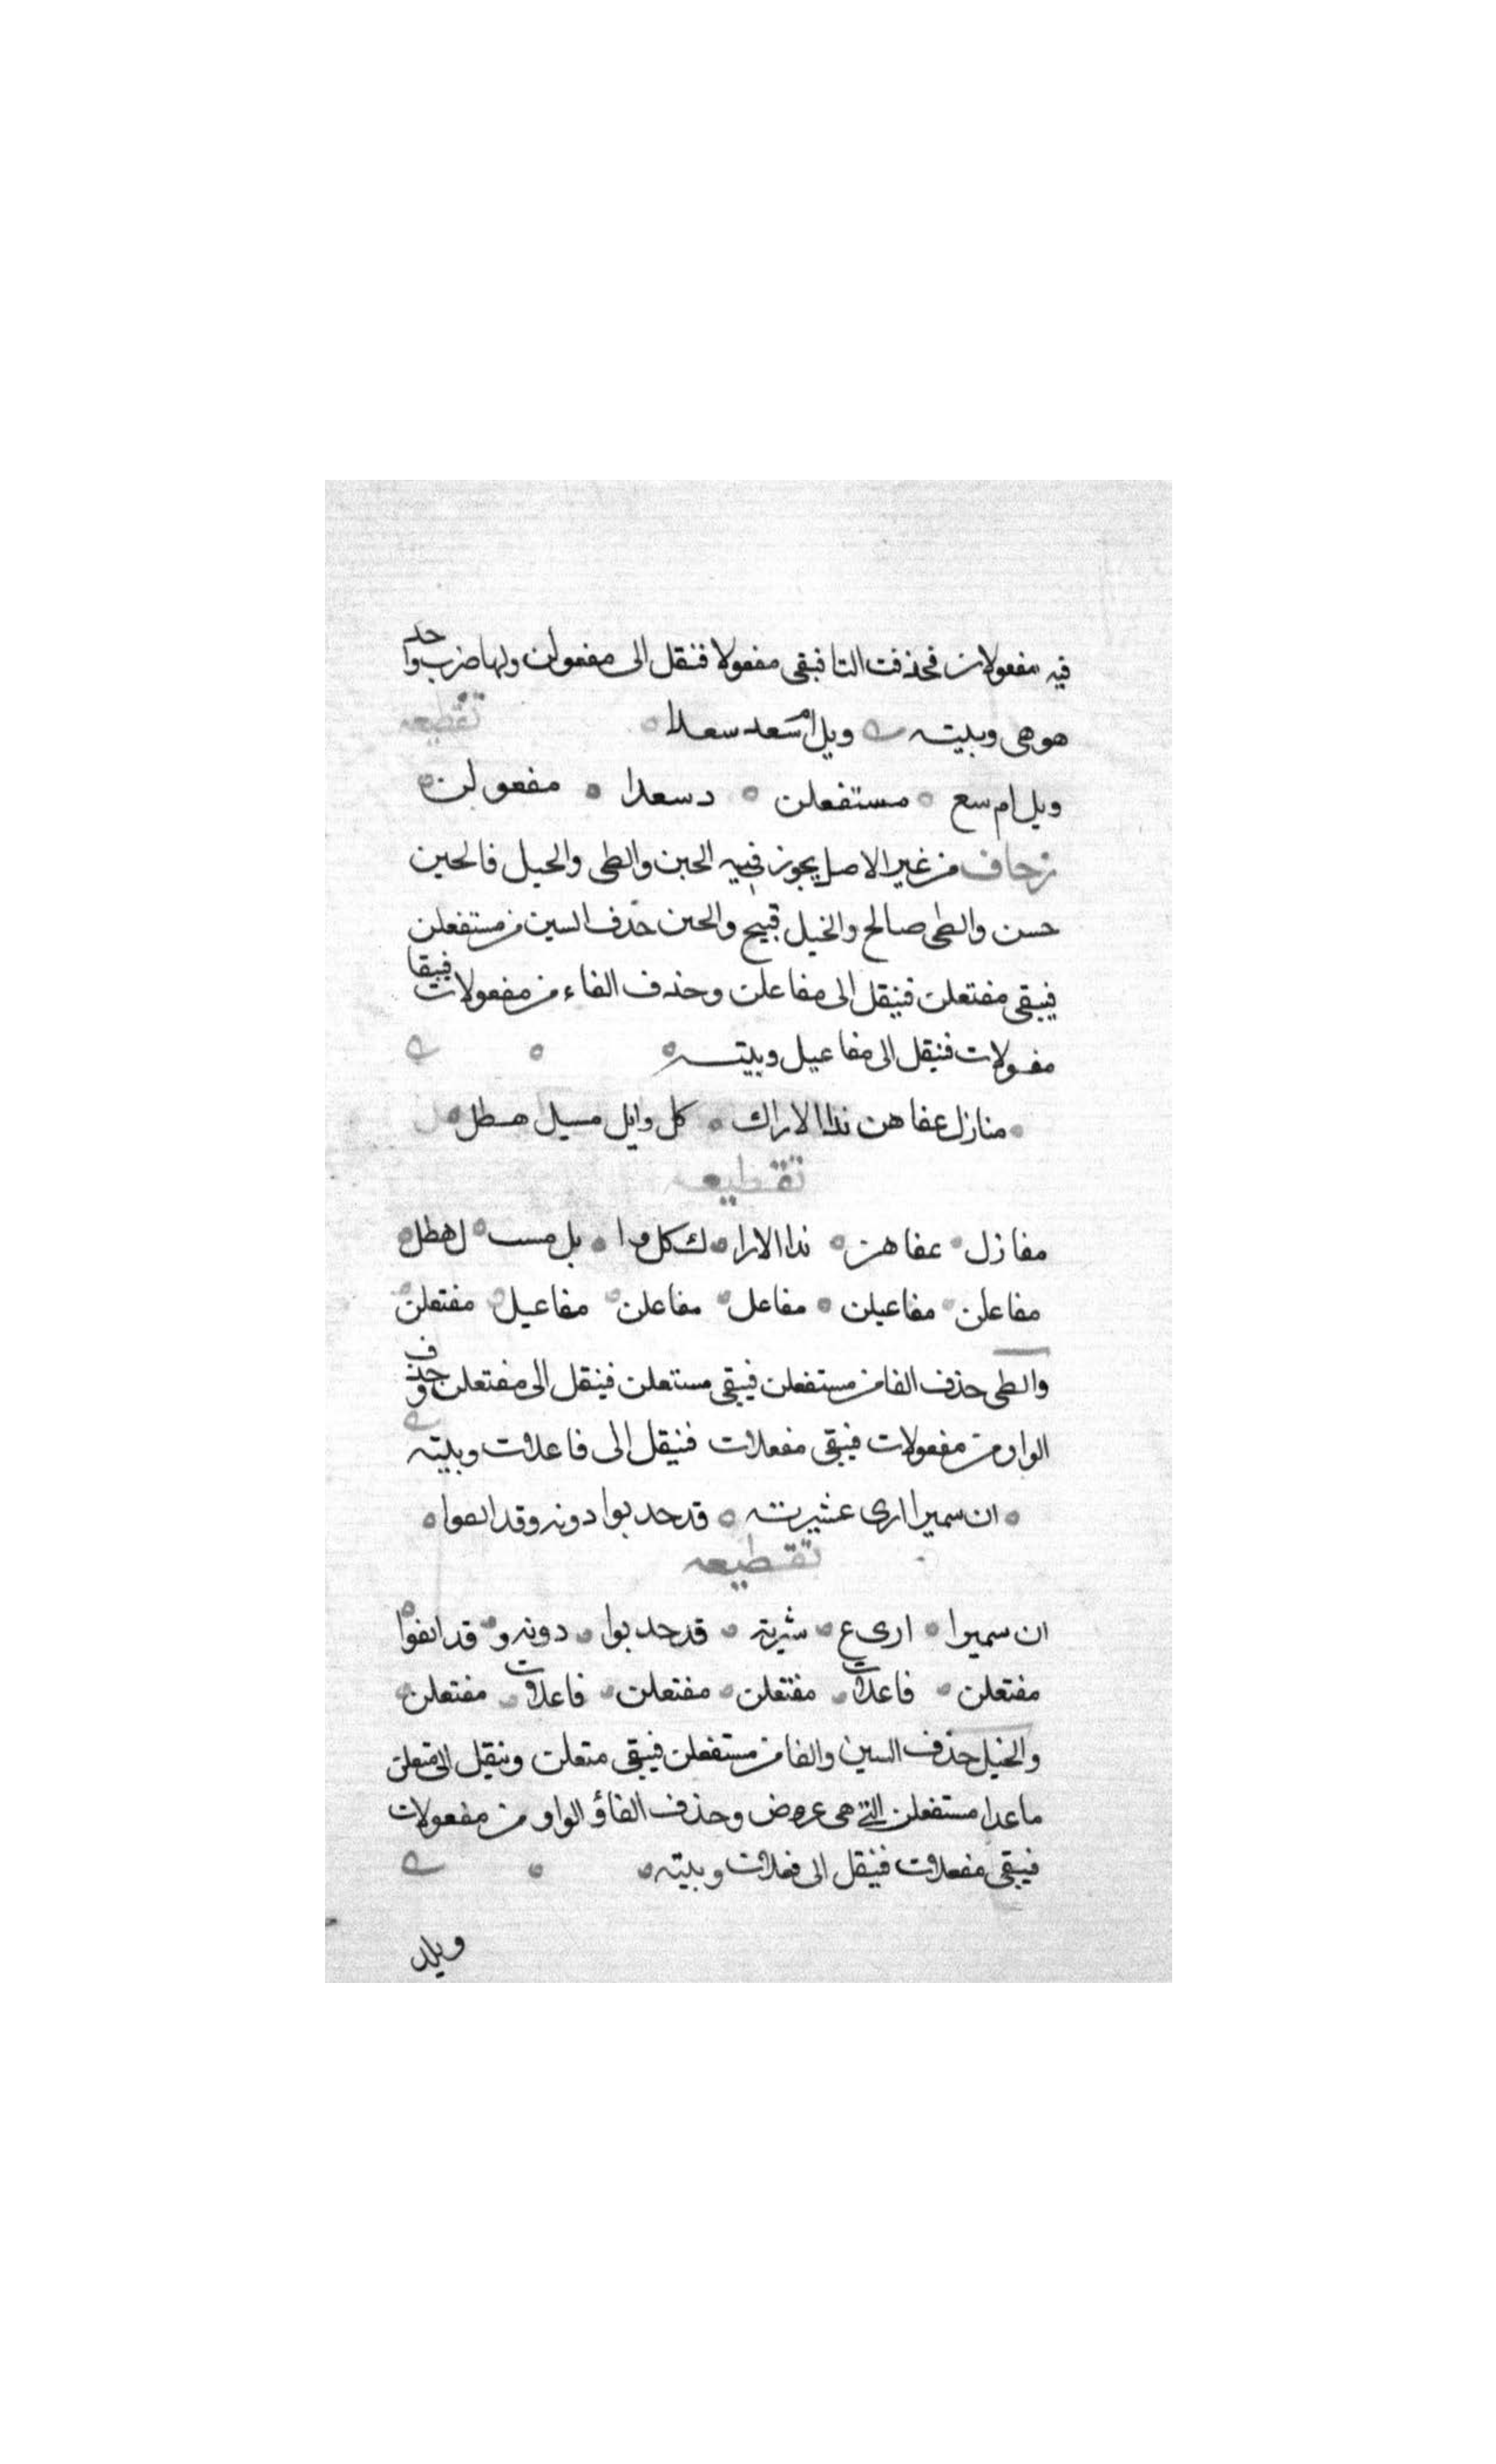 فيه مفعولات فحذفت التا فبقى مفعولا فنقل الى مفعولن ولها ضرب واحد
هو هى وبيته ويل ام سعد سعدا تقطيعه
ويل ام سع مستفعلن د سعدا مفعولن
زحاف من غير الاصل يجوز فيه الحبن والطى والحبل فالحبن
حسن والطى صالح والخبل قبيح والحبن حذف السين من مستفعلن
فيبقى مفتعلن فينقل الى مفاعلن وحذف الفاء من مفعولات فيبقا
مفولات فنيقل الى مفاعيل وبيته
منازل عفاهن ندا الاراك كل وابل مسيل هطل
تقطيعه
مفازل عفاهن ندا الارا ك كل وا بل مسب ل هطل
مفاعلن مفاعيلن مفاعل مفاعلن مفاعيل مفتعلن
والطى حذف الفا من مستفعلن فيبقى مستعلن فينقل الى مفتعلن وحذف
الواو من مفعولات فيبقى مفعلات فنيقل الى فاعلات وبيته
ان سميرا ارى عشيرته قد حدبوا دونه وقد انفوا
تقطيعه
ان سميرا ارى ع شيرته قد حدبوا دونه و قد انفوا
مفتعلن فاعلات مفتعلن مفتعلن فاعلات مفتعلن
والخبل حذف السين والفا من مستفعلن فيبقى متعلن وينقل الى فتعلن
ما عدا مستفعلن التي هى عروض وحذف الفاؤ الواو من مفعولات
فيبقى مفعلات فينقل الى فعلات وبيته
وبلد